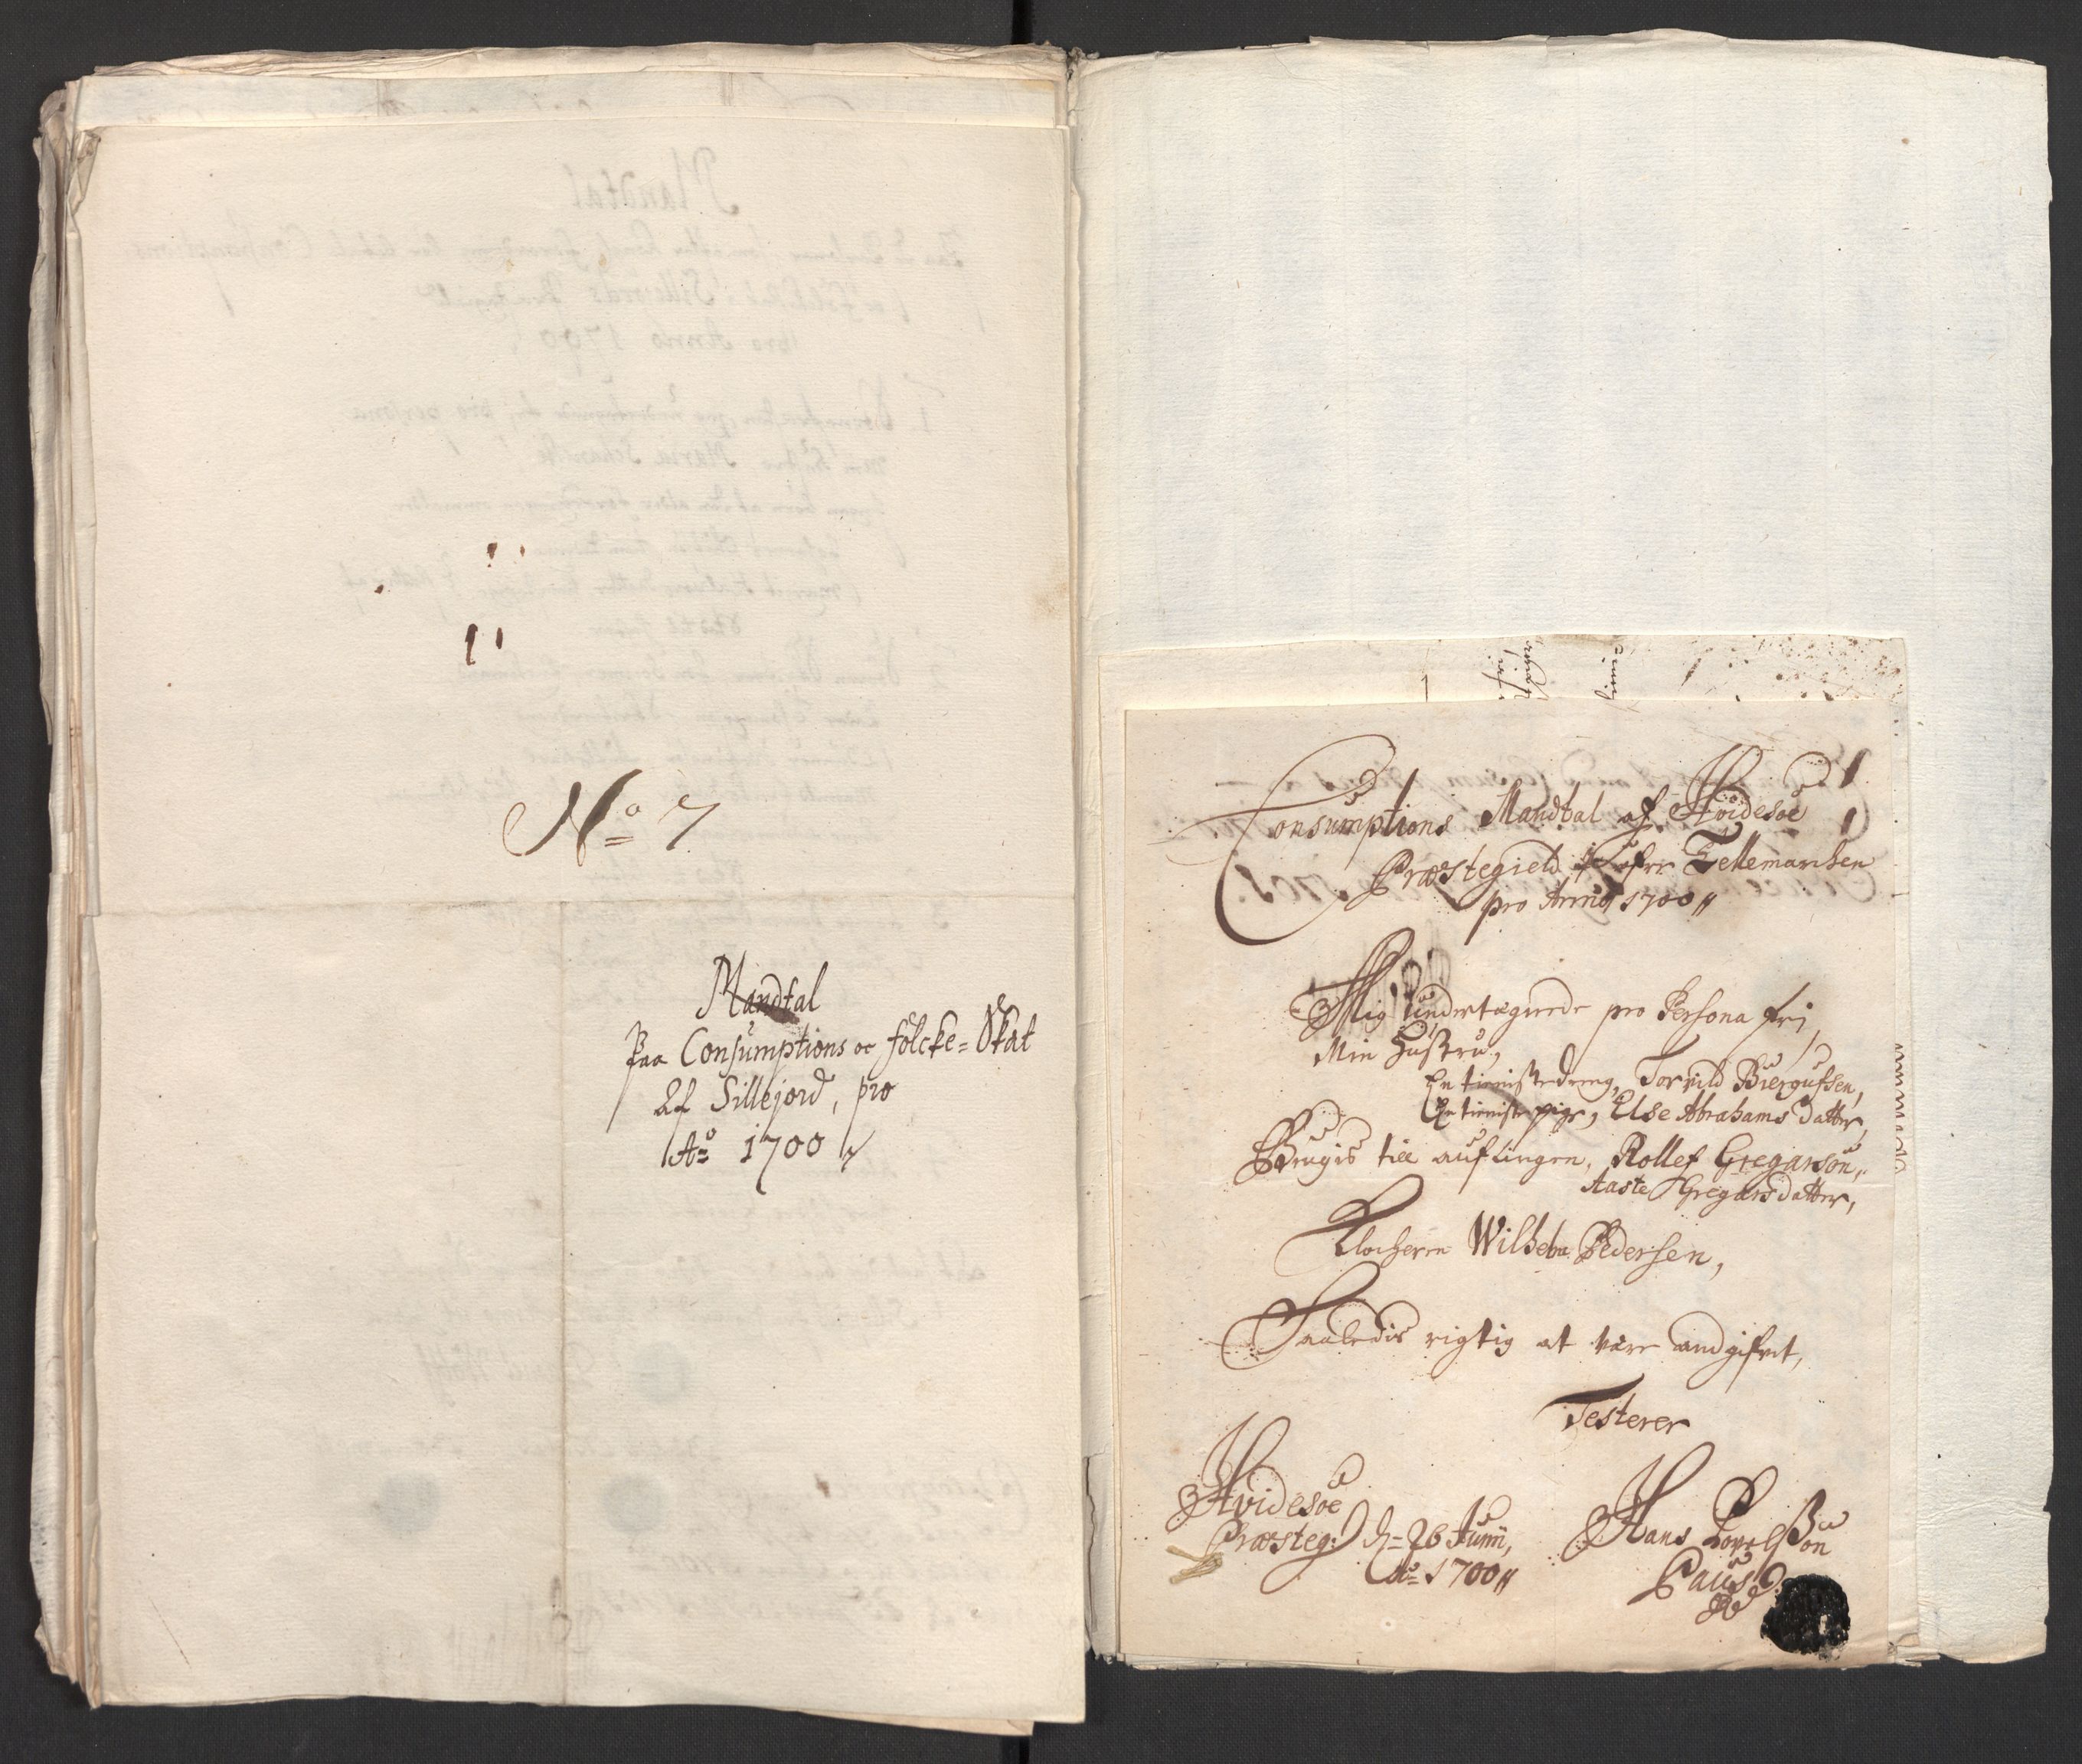 No 7
Mandtal
Paa Consumptions oc folcke=Skat
Af Sillejord, pro
Ao 1700
Consumptions Mandtal af Hvidesøe
Præstegield i Øfre Tellemarchen
pro Anno 1700
Mig undertegnede pro Persona fri,
Min Hustru,
En tienistedreng, Torvild Biergufsen,
En tieniste pige, Else Abrahams datter,
Brugis till auflingen, Rollef Gregarsøn,
Aaste Gregarsdatter,
Klocheren Wilhelm Pedersen,
Saaledis rigtig at være andgifvet,
Testerer
Hvidesøe
Præsteg: d= 26 Junii,
Ao= 1700
Hans Povelsøn
Paus